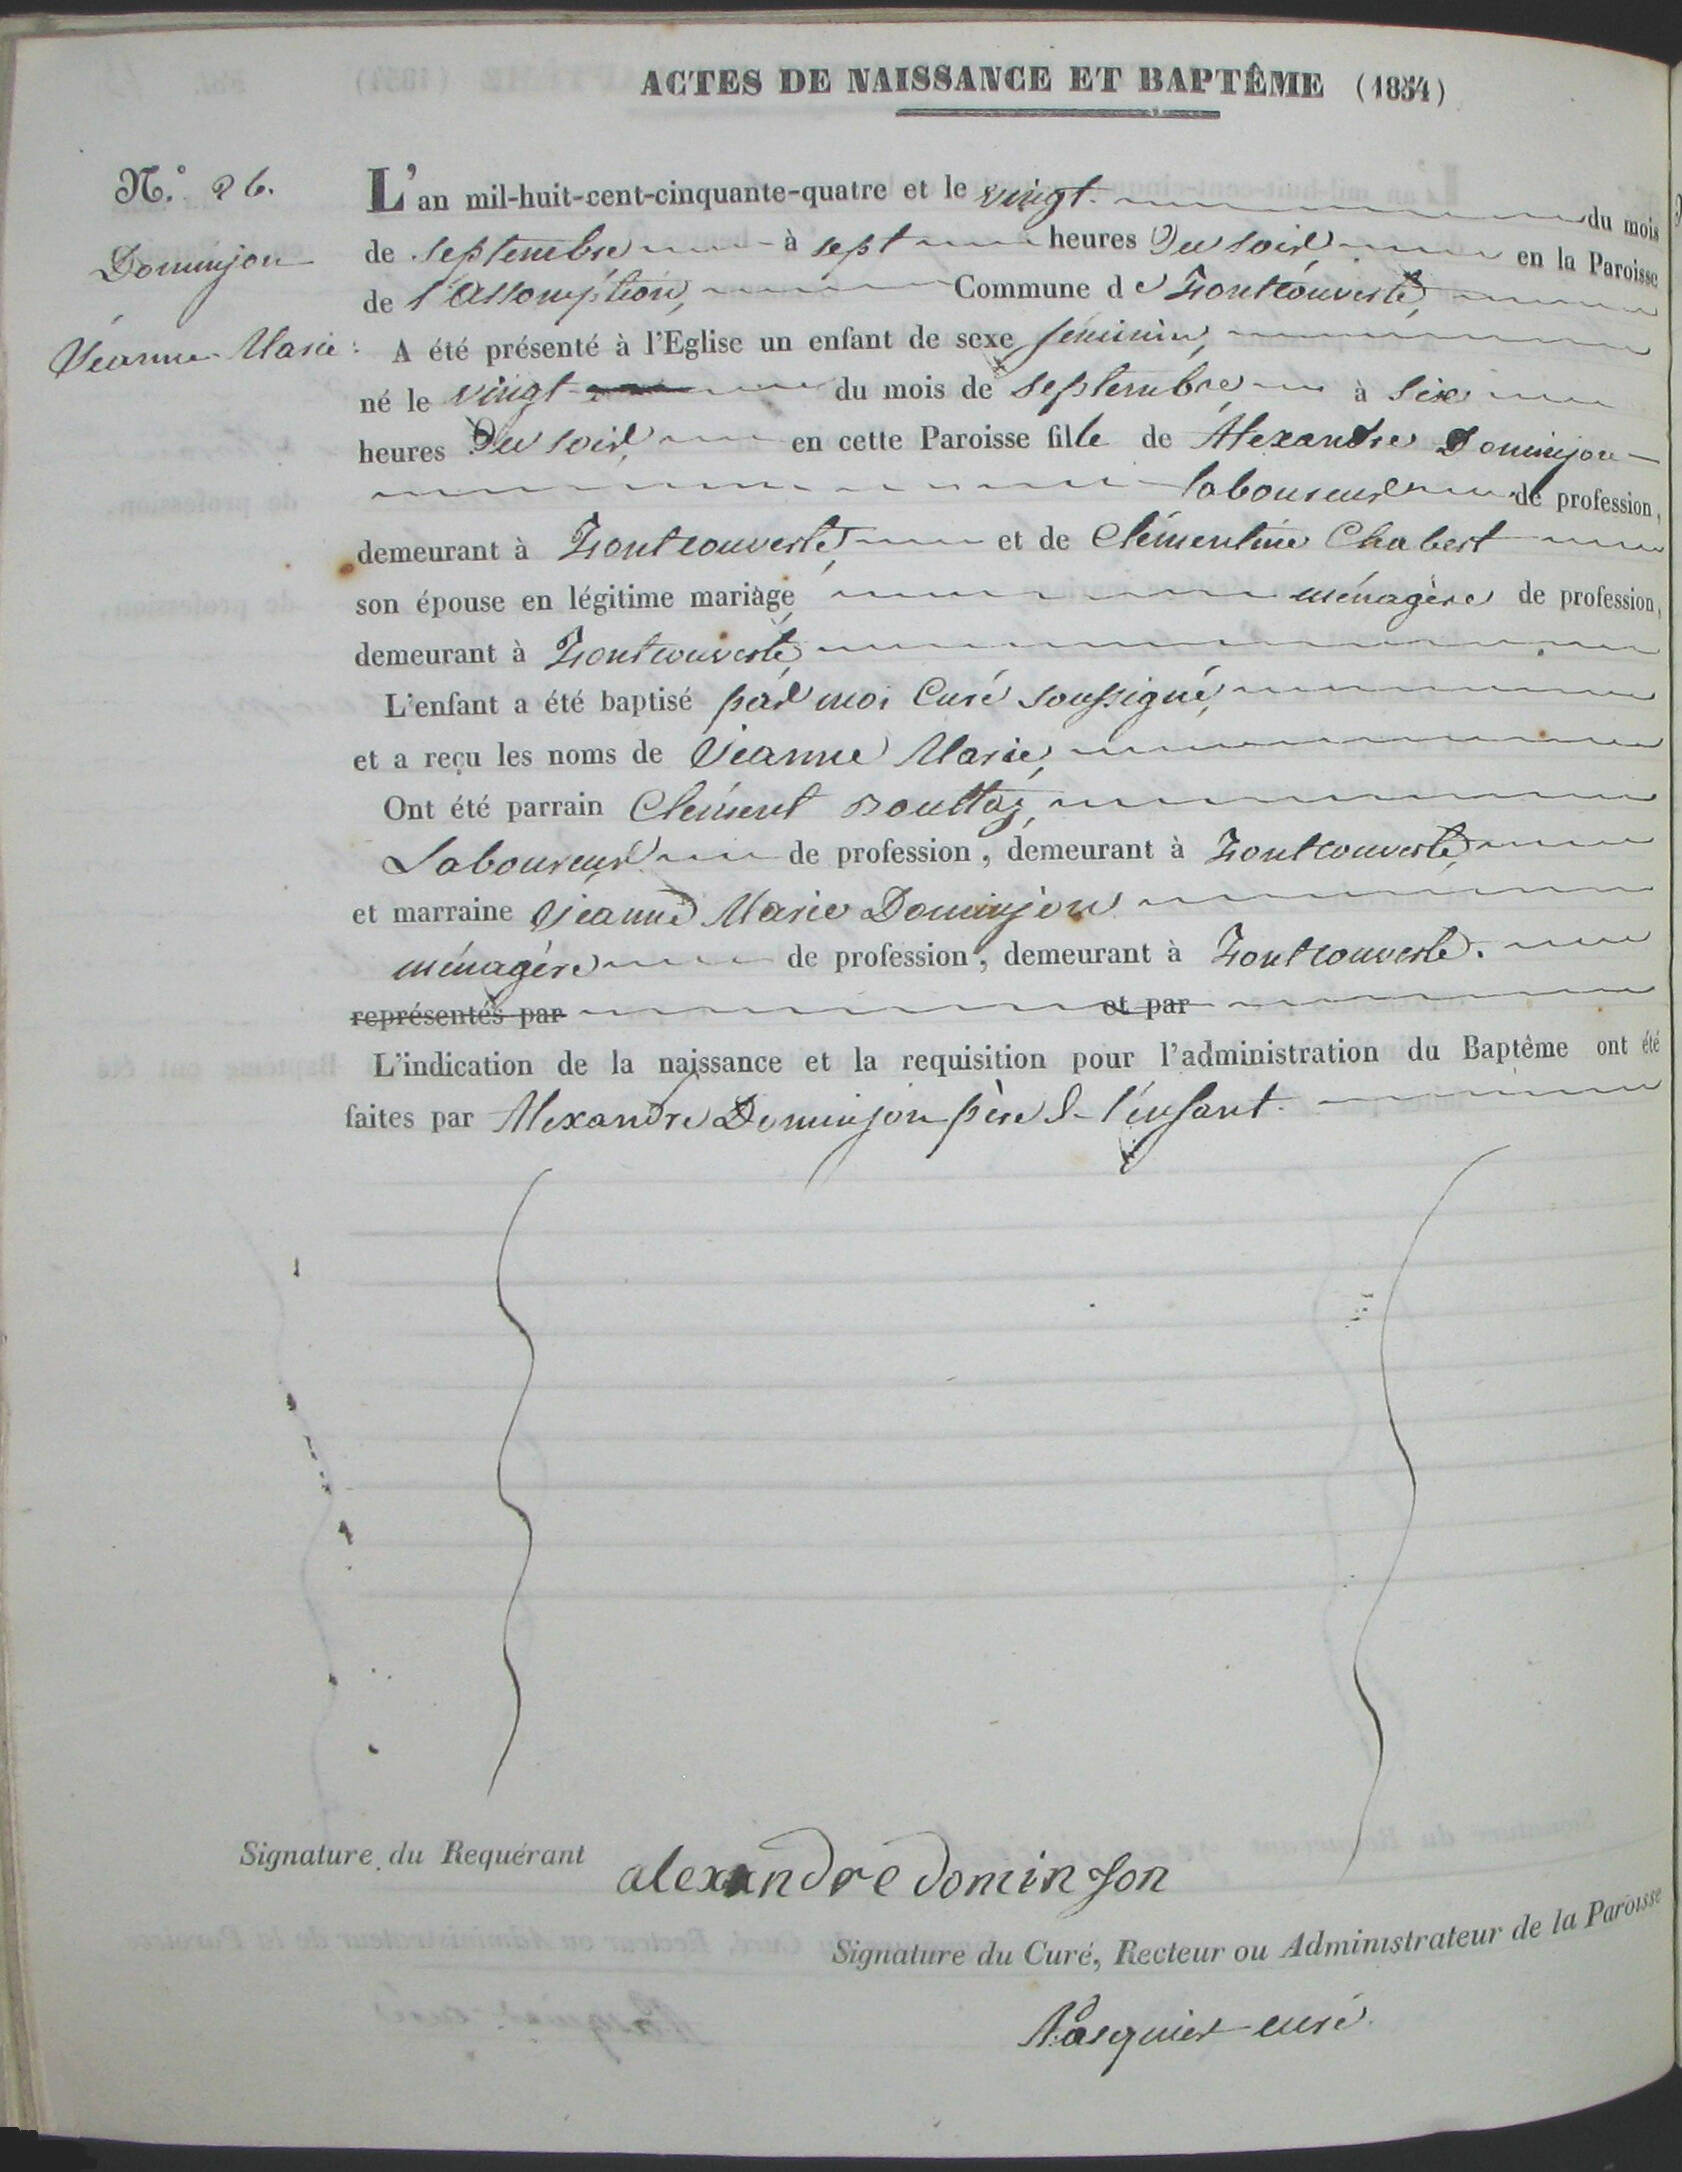 ACTES DE NAISSANCE ET BAPTÊME (1854)
N.° 26.
Dominjon
Jeanne Marie
L'an mil-huit-cent-cinquante-quatre et le vingt du mois
de septembre à sept heures du soir en la Paroisse
de l'assomption, Commune de Montcouverte,
A été présenté à l'Eglise un enfant de sexe féminin,
né le vingt du mois de septembre à six
heures du soir, en cette Paroisse fille de Alexandre Dominjon
laboureur de profession,
demeurant à Montcouverte, et de Clémentine Chabert
son épouse en légitime mariage ménagère de profession,
demeurant à Montcouverte
L'enfant a été baptisé par moi Curé soussigné,
et a reçu les noms de Jeanne Marie,
Ont été parrain Clément Bouttaz,
Laboureur de profession, demeurant à Montcouverte,
et marraine Jeanne Marie Dominjon
ménagère de profession, demeurant à Montcouverte.
représentés par et par
L'indication de la naissance et la requisition pour l'administration du Baptême ont été
faites par Alexandre Dominjon père de l'enfant.
Signature du Requérant alexandre dominjon
Signature du Curé, Recteur ou Administrateur de la Paroisse
Pasquier curé